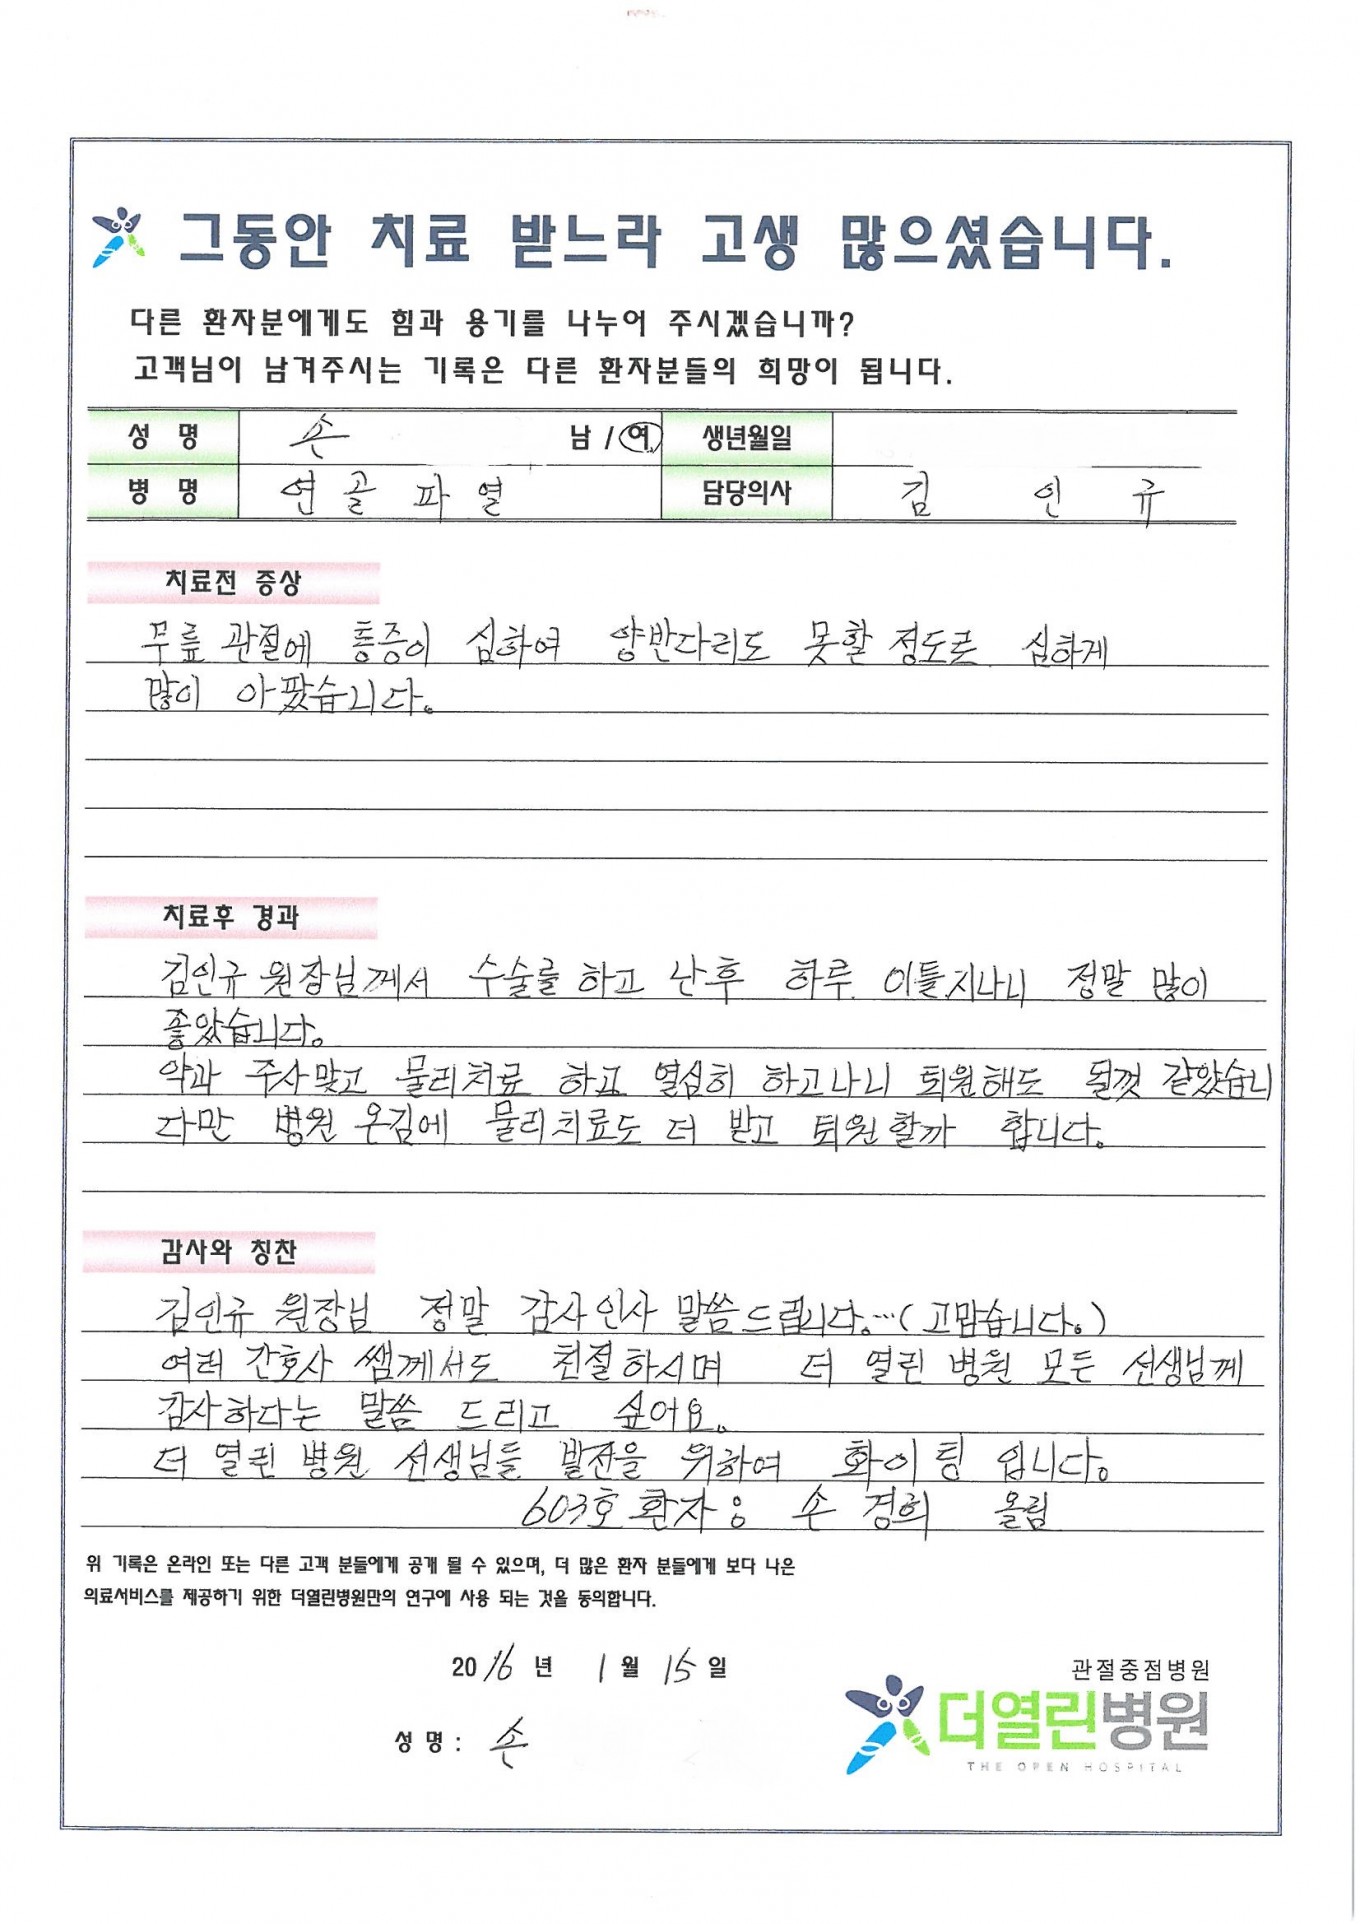 그동안 치료 받느라 고생 많으셨습니다.
다른 환자분에게도 힘과 용기를 나누어 주시겠습니까?
고객님이 남겨주시는 기록은 다른 환자분들의 희망이 됩니다.
성 명 손 남 / 여 생년월일
병 명 연골파열 담당의사 김 인 규
치료전 증상
무릎 관절에 통증이 심하여 양반다리도 못할 정도로 심하게
많이 아팠습니다.
치료후 경과
김인규 원장님께서 수술을 하고 난후 하루 이틀지나니 정말 많이
좋았습니다.
약과 주사맞고 물리치료 하고 열심히 하고나니 퇴원해도 될껏 같았습니
다만 병원 온김에 물리치료도 더 받고 퇴원할까 합니다.
감사와 칭찬
김인규 원장님 정말 감사인사 말씀드립니다.…(고맙습니다.)
여러 간호사 쌤께서도 친절하시며 더 열린 병원 모든 선생님께
감사하다는 말씀 드리고 싶어요.
더 열린 병원 선생님들 발전을 위하여 화이팅 입니다.
603호 환자: 손 경희 올림
위 기록은 온라인 또는 다른 고객 분들에게 공개 될 수 있으며, 더 많은 환자 분들에게 보다 나은
의료서비스를 제공하기 위한 더열린병원만의 연구에 사용 되는 것을 동의합니다.
2016년 1월 15일
관절중점병원
더열린병원
THE OPEN HOSPITAL
성 명 : 손